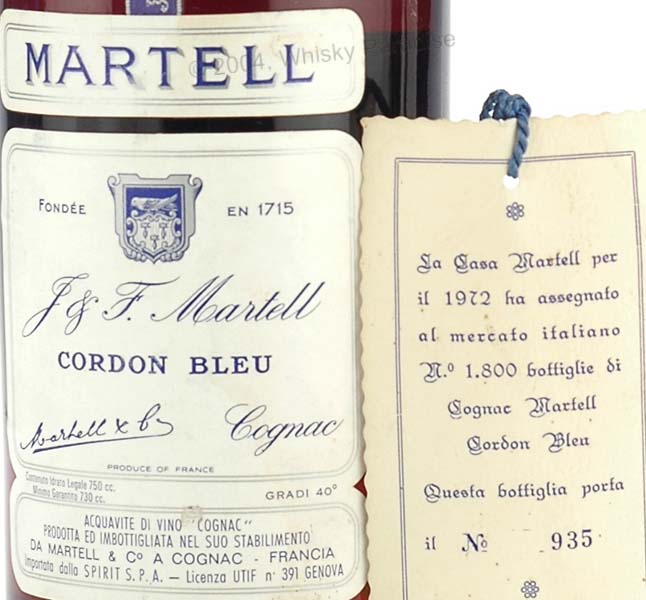 © 2004, Whisky Paradise
MARTELL
FONDÉE EN 1715
J & F. Martell
CORDON BLEU
Martell & Co
Cognac
PRODUCE OF FRANCE
Contenuto Idrato Legale 750 cc.
Minimo Garantito 730 cc.
GRADI 40°
ACQUAVITE DI VINO "COGNAC"
PRODOTTA ED IMBOTTIGLIATA NEL SUO STABILIMENTO
DA MARTELL & Cº A COGNAC - FRANCIA
Importata dalla SPIRIT S.P.A. — Licenza UTIF n° 391 GENOVA
La Casa Martell per
il 1972 ha assegnato
al mercato italiano
N.º 1.800 bottiglie di
Cognac Martell
Cordon Bleu
Questa bottiglia porta
il Nº 935